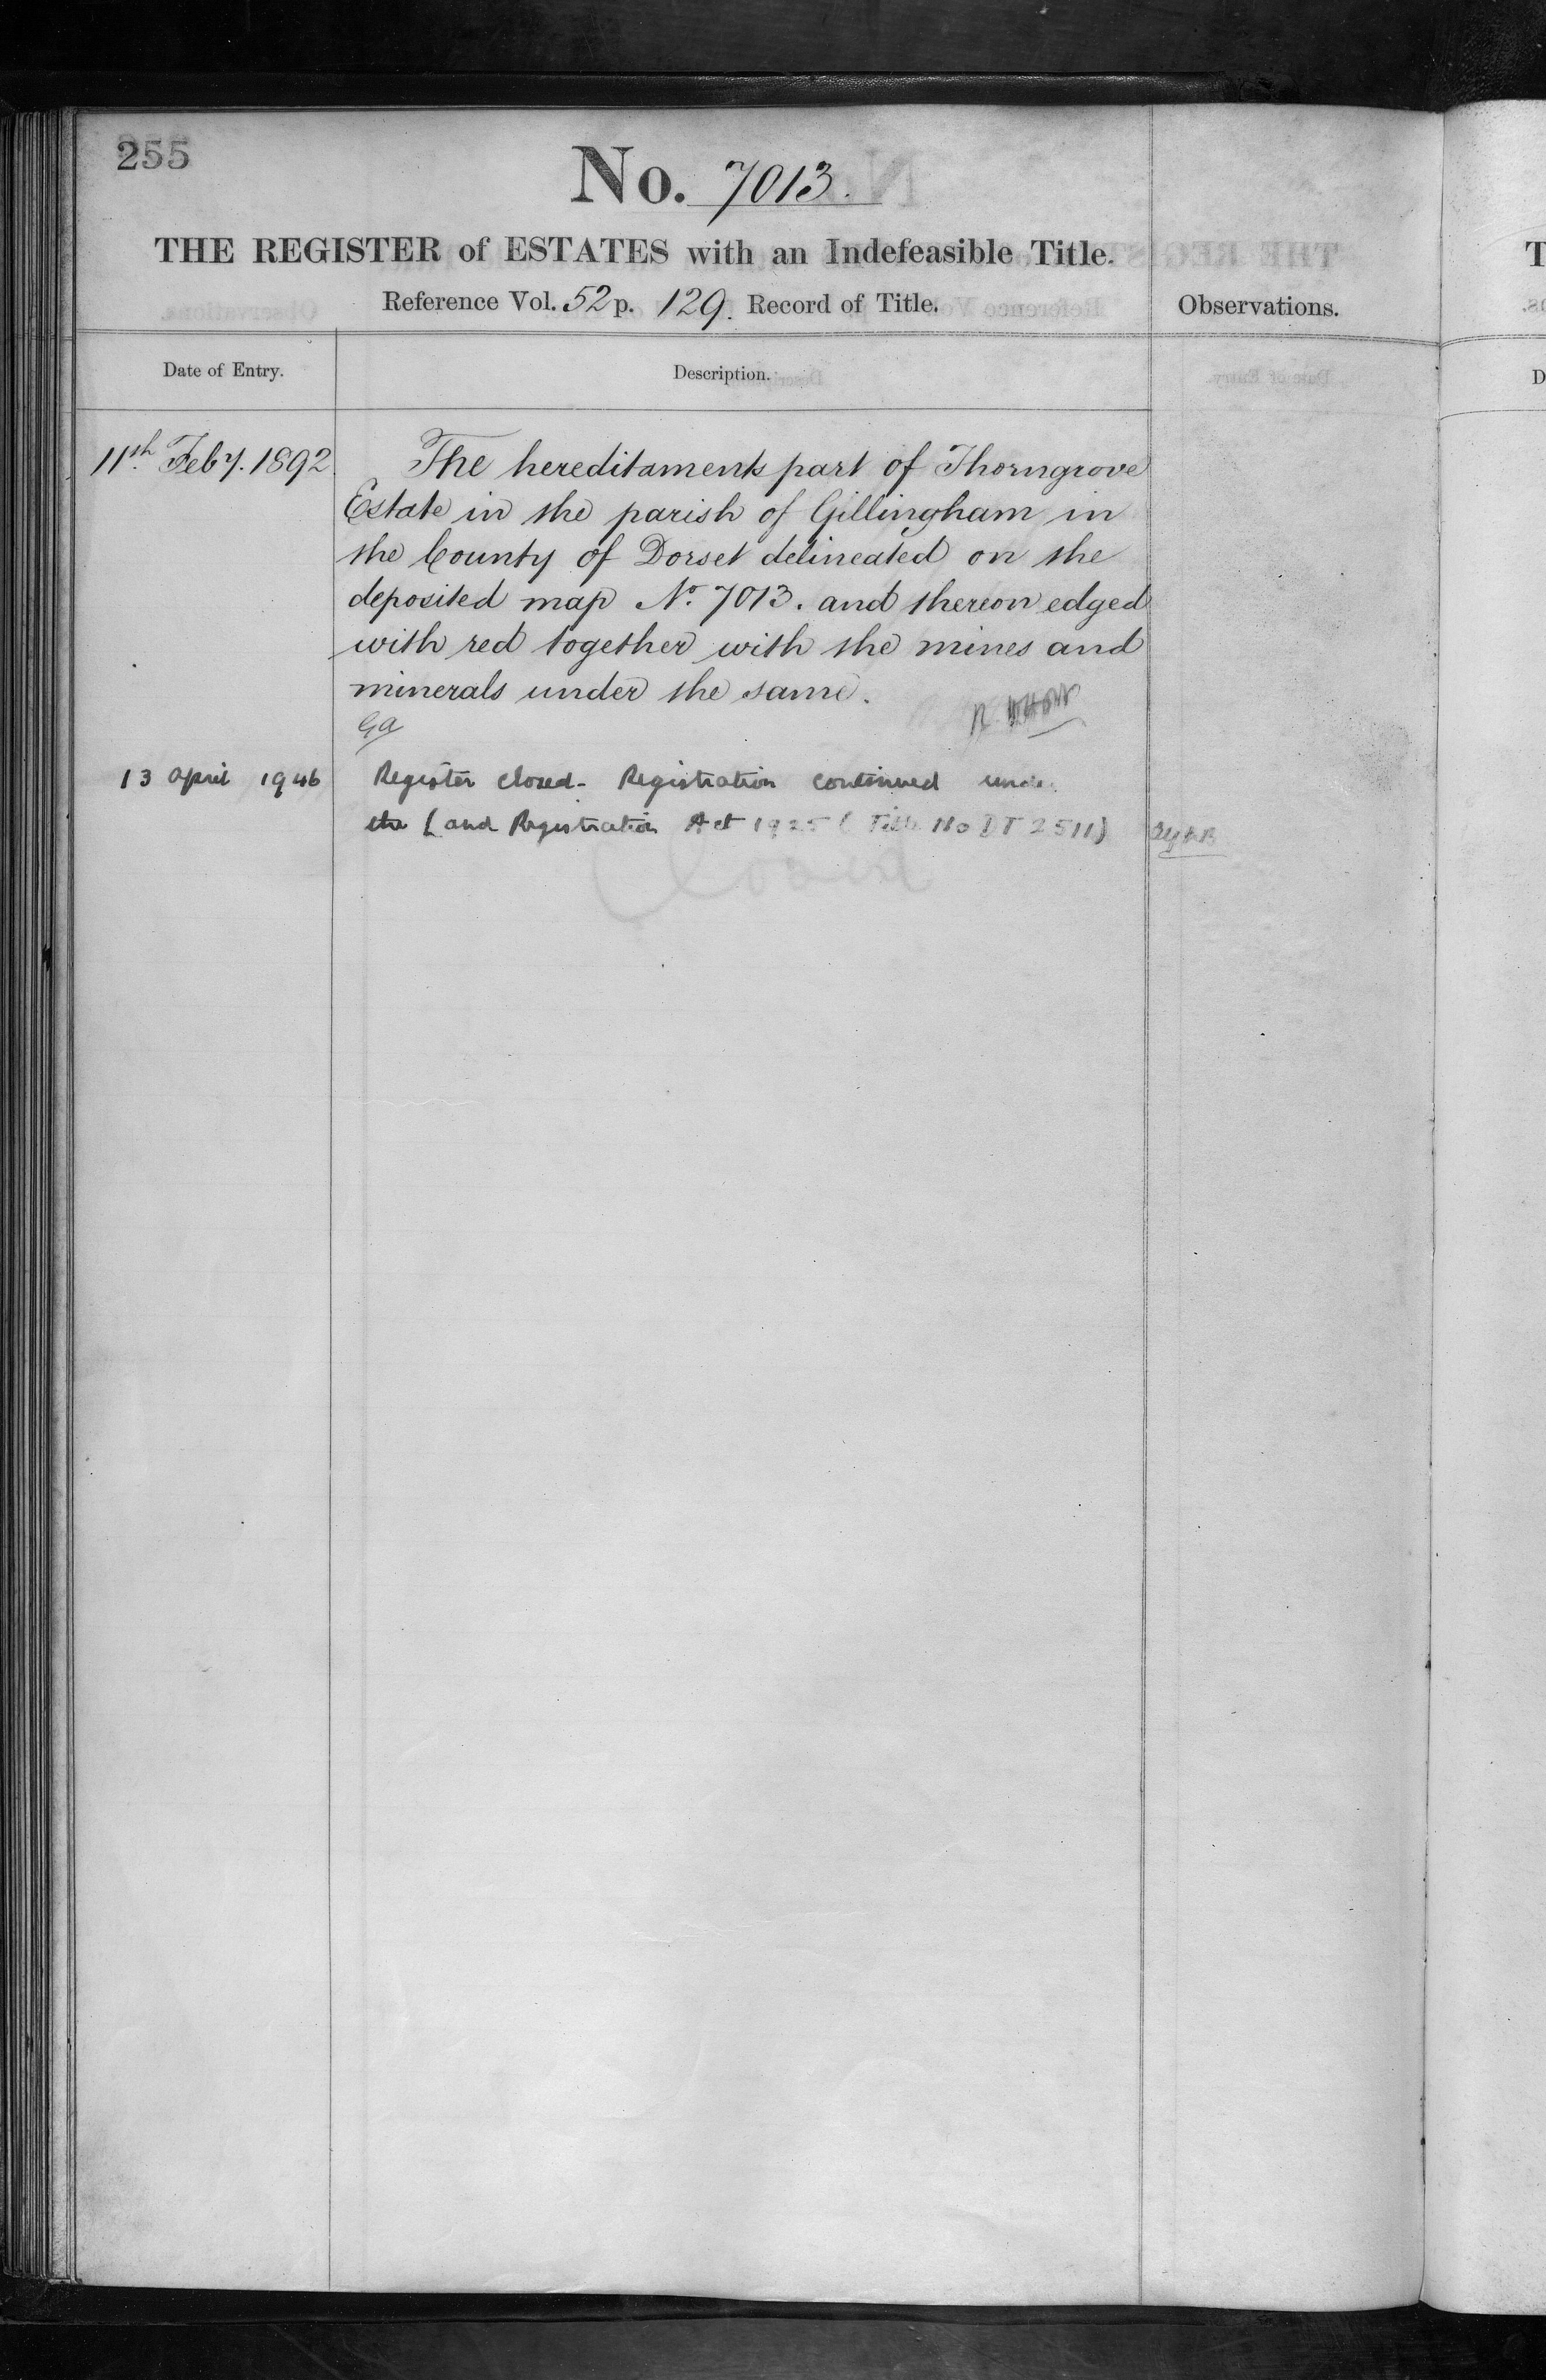 255
No. 7013.
THE REGISTER of ESTATES with an Indefeasible Title.
Reference Vol. 52 p. 129. Record of Title.
Observations.
Date of Entry.
Description.
11th Feby. 1892
The hereditaments part of Thorngrove
Estate in the parish of Gillingham in
the County of Dorset delineated on the
deposited map No. 7013. and thereon edged
with red together with the mines and
minerals under the same.
13 April 1946
Register closed - Registration continued under
the Land Registration Act 1925 (Title No DT 2511)
Closed